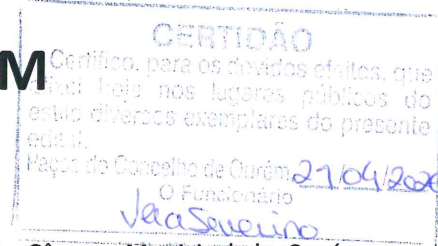 CERTIDÃO
M
Certifico, para os devidos efeitos, que
afixei hoje nos lugares públicos do
estilo diversos exemplares do presente
edital.
Paços do Concelho de Ourém 21/04/2026
O Funcionário
Vera Severino